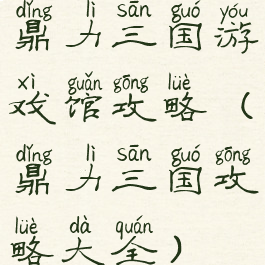 dǐng lì sān guó yóu
鼎力三国游
xì guǎn gōng lüè
戏馆攻略（
dǐng lì sān guó gōng
鼎力三国攻
lüè dà quán
略大全）